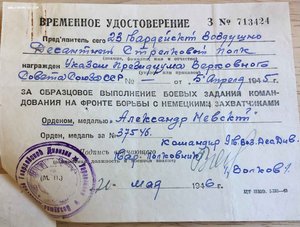 ВРЕМЕННОЕ УДОСТОВЕРЕНИЕ З № 713424
Пред'явитель сего 23 Гвардейский Воздушно
Десантный Стрелковый Полк
награжден Указом Президиума Верховного
Совета Союза ССР — 5 Апреля 1945 г.
ЗА ОБРАЗЦОВОЕ ВЫПОЛНЕНИЕ БОЕВЫХ ЗАДАНИЙ КОМАН-
ДОВАНИЯ НА ФРОНТЕ БОРЬБЫ С НЕМЕЦКИМИ ЗАХВАТЧИКАМИ
Орденом, медалью "Александр Невский"
Орден, медаль № 37546.
Командир
Гвар. Полковник
Подпись
Волков
(М. П.)
21 мая 1946 г.